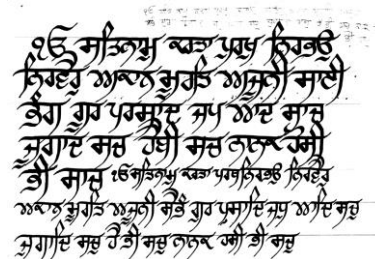 ੴ ਸਤਿਨਾਮੁ ਕਰਤਾ ਪੁਰਖੁ ਨਿਰਭਉ
ਨਿਰਵੈਰੁ ਅਕਾਲ ਮੂਰਤਿ ਅਜੂਨੀ
ਗੁਰ ਪਰਸਾਦਿ ਜਪ ਆਦ ਸਾਚ
ਜੁਗਾਦ ਸਚ ਹੈਭੀ ਸਚ ਨਾਨਕ ਹੋਸੀ
ਭੀ ਸਾਚ ੴ ਸਤਿਨਾਮੁ ਕਰਤਾ ਪੁਰਖੁ ਨਿਰਭਉ ਨਿਰਵੈਰੁ
ਅਕਾਲ ਮੂਰਤਿ ਅਜੂਨੀ ਸੈਭੰ ਗੁਰ ਪ੍ਰਸਾਦਿ ਜਪੁ ਆਦਿ ਸਚੁ
ਜੁਗਾਦਿ ਸਚੁ ਹੈ ਭੀ ਸਚੁ ਨਾਨਕ ਹੋਸੀ ਭੀ ਸਚੁ